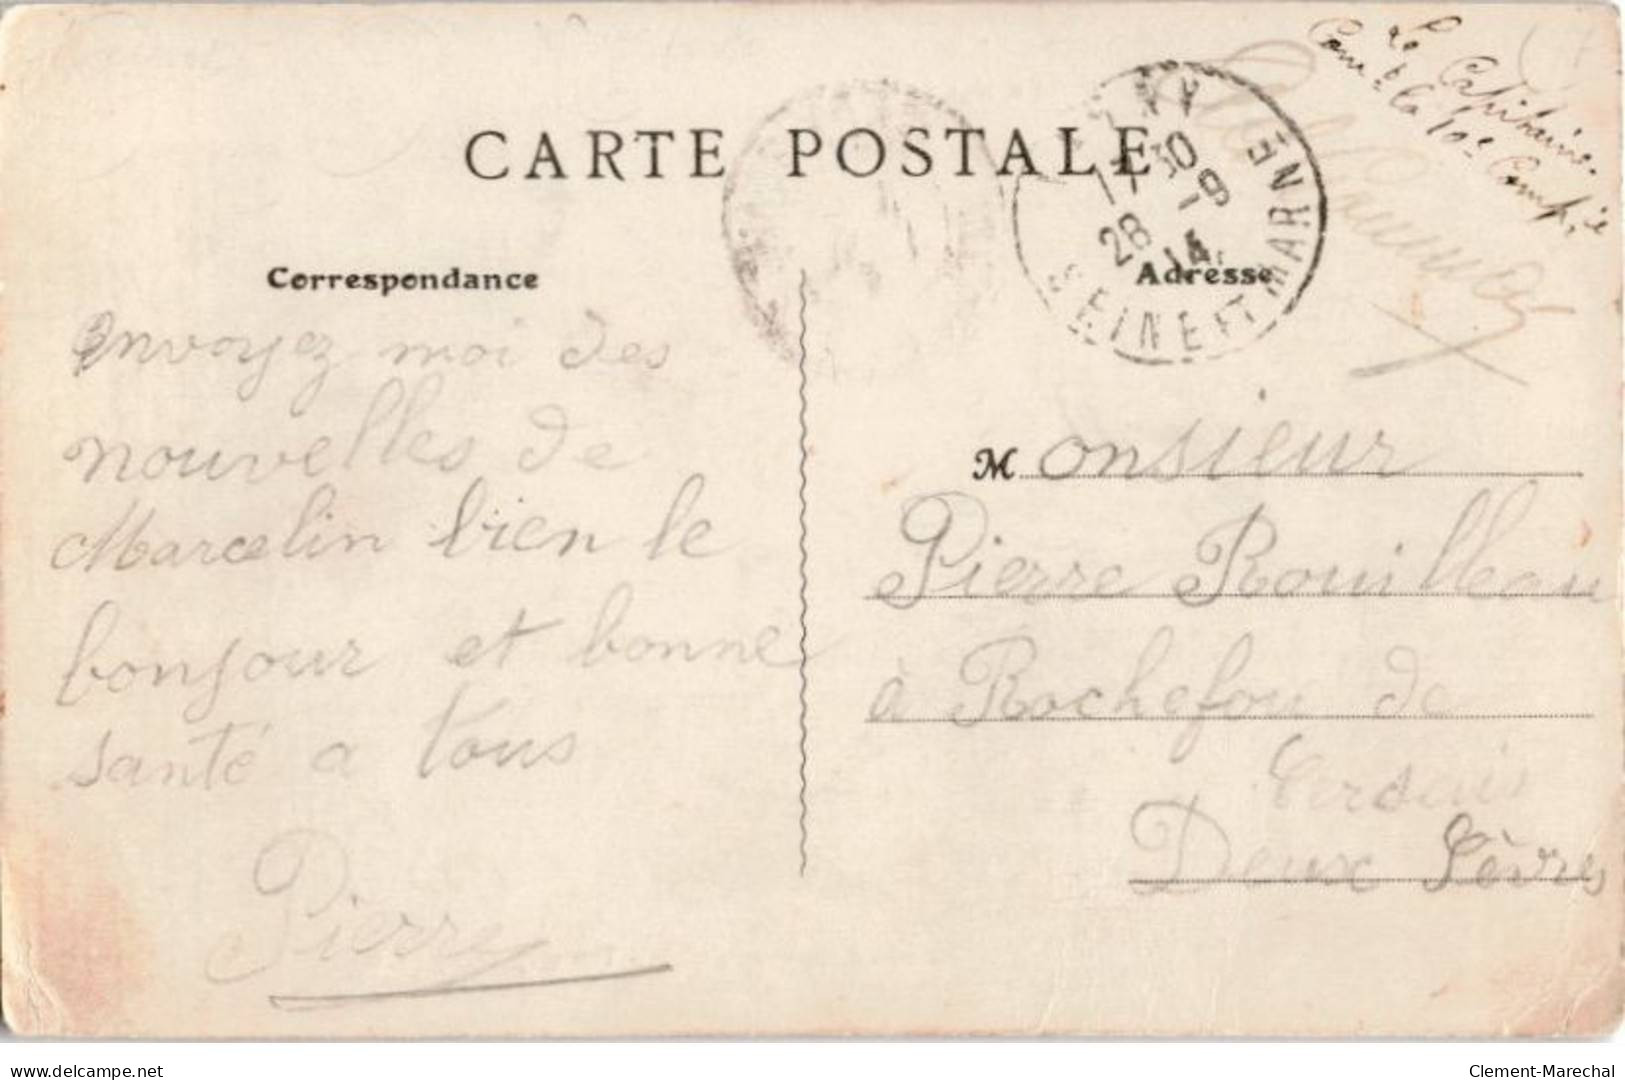 Le Capitaine
Com.t la 10e Comp.ie
CARTE POSTALE
17 30
28 -9
14
SEINE ET MARNE
Correspondance
Adresse
envoyez moi des
nouvelles de
Marcelin bien le
bonjour et bonne
santé a tous
Pierre
Monsieur
Pierre Rouilleau
à Rochefou de
Deux Sèvres
delcampe.net
Clement-Marechal